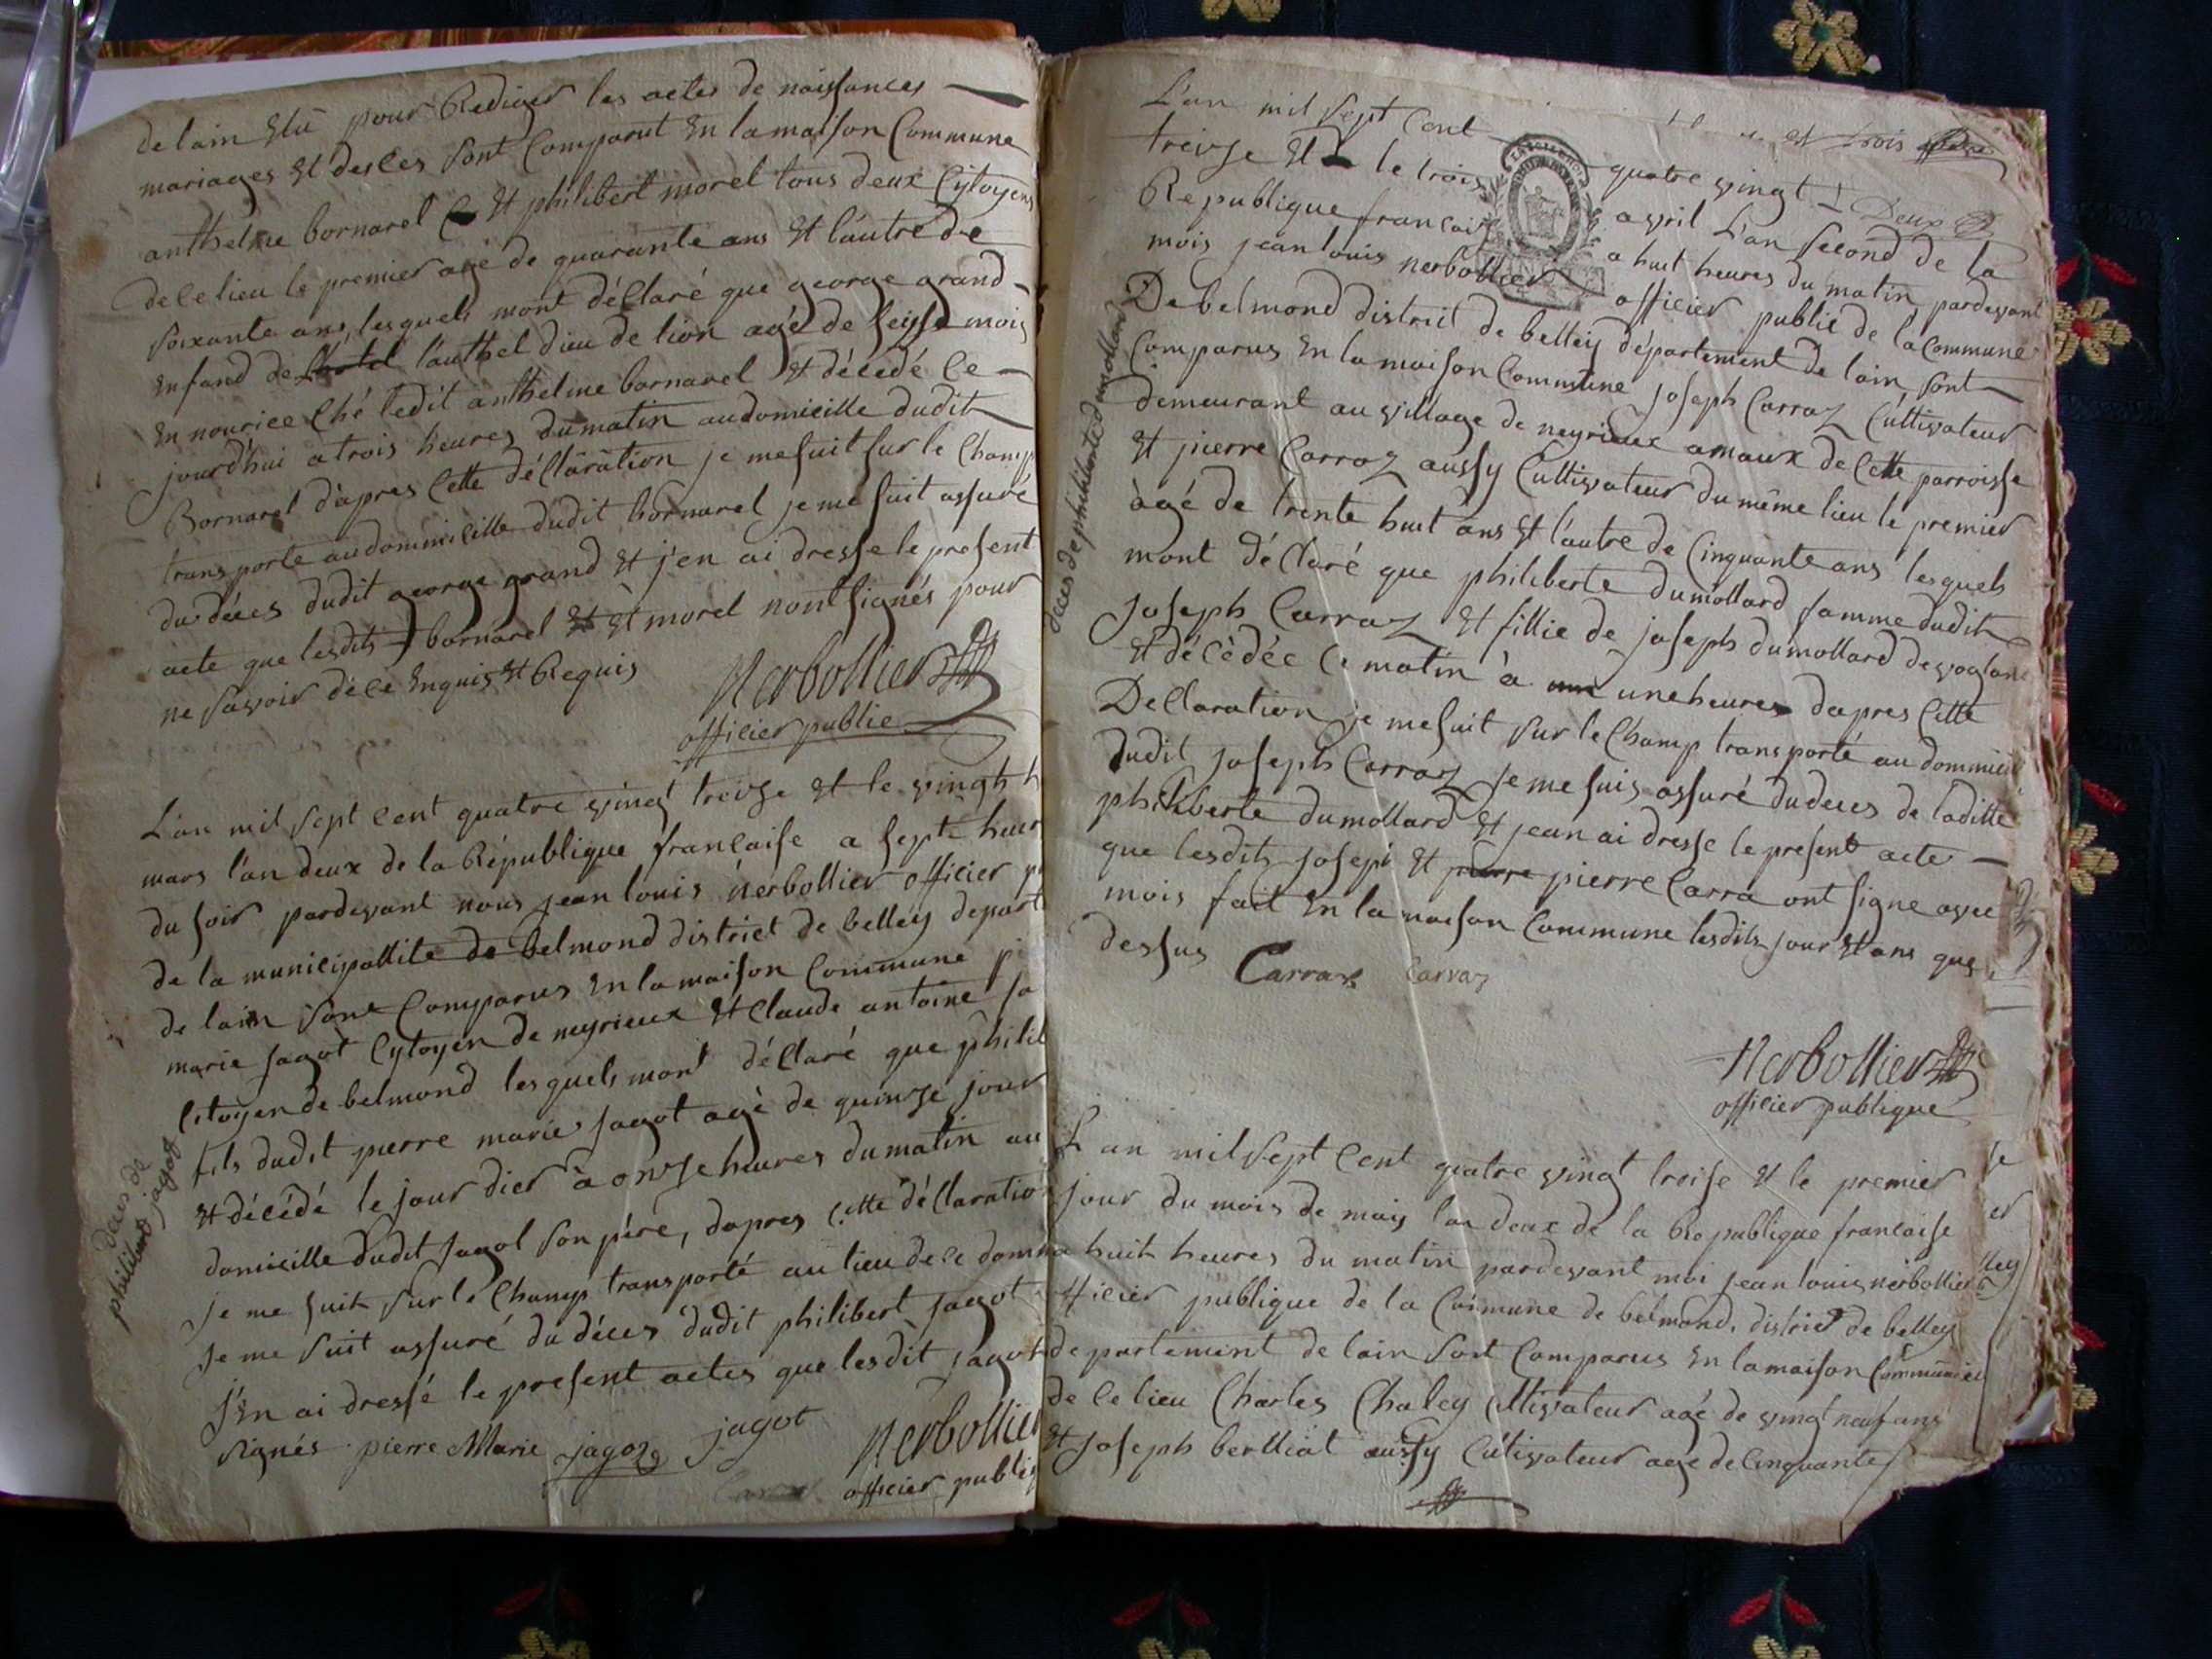 de lain Elû pour Rediger les actes de naissances
mariages Et desces sont Comparut En lamaison Commune
anthelme bornarel Et philibert morel tous deux Cytoyens
de Ce lieu le premier agé de quarante ans Et l'autre de
soixante ans, lesquels mont déClaré que george grand
Enfand de l'authel dieu de lion agé de seisse mois
En nourice Ché ledit anthelme bornarel Et décédé Ce
jourd'hui a trois heures dumatin audomicille dudit
Bornarel d'apres Cette déClaration je mesuit sur le Champ
transporte audommicille dudit bornarel je me suit assuré
du déces dudit george grand Et j'en ai dresse le present
acte que lesdits bornarel Et morel nont signés pour
ne savoir de Ce Enquis Et Requis
Nerbollier
officier public
L'an mil sept Cent quatre vingt treize Et le vingt h
mars l'an deux de la République francaise a sept heur
du soir pardevant nous jean louis nerbollier officier p
de la municipallite de belmond district de belley depart
de lain sont Comparus En lamaison Commune pi
marie jagot Cytoyen de neyrieux Et Claude antoine ja
Citoyen de belmond lesquels mont déClaré que philib
fils dudit pierre marie jagot agé de quinze jour
Et décédé le jour dier à onze heures dumatin au
domicille dudit jagot son pére, dapres Cette déClaratio
je me suit sur le Champ transporté au lieu de Ce domm
je me suit assuré du déces dudit philibert jagot
j'En ai dressé le present actes que lesdit jagot
signés pierre Marie jagot jagot
Nerbollier
officier public
deces de
philibert jagot
L'an mil sept Cent quatre vingt Deux
treize Et le trois avril L'an second de la
Republique francaise a huit heures du matin pardevant
mois jean louis nerbollier officier public de la Commune
De belmond district de belley département de lain, sont
Comparus En lamaison Commune joseph Carraz Cultivateur
demeurant au village de neyrieux amaux de Cette parroisse
Et pierre Carraz aussy Cultivateur du même lieu le premier
àgé de trente huit ans Et l'autre de Cinquante ans lesquels
mont déClaré que philiberte dumollard famme dudit
joseph Carraz Et fillie de joseph dumollard de voglans
Et décèdée Ce matin à une heures dapres Cette
DeClaration je mesuit sur le Champ transporté au dommicil
dudit joseph Carraz je me suis assuré dudeces de laditte
philiberte dumollard Et jean ai dresse le present acte
que lesdits joseph Et pierre pierre Carra ont signe avec
mois fait En la maison Commune lesdits jour Et ans que
dessus Carraz Carraz
Nerbollier
officier publique
deces de philiberte dumollard
L'an mil sept Cent quatre vingt treise Et le premier
jour du mois de may lan deux de la Republique francaise
a huit heures du matin pardevant moi jean louis nerbollier
officier publique de la Commune de belmond. district de belley
departement de lain sont Comparus En lamaison Commune
de Ce lieu Charles Chaley Cultivateur agé de vingt neuf ans
Et joseph berlliat aussy Cultivateur age de Cinquante